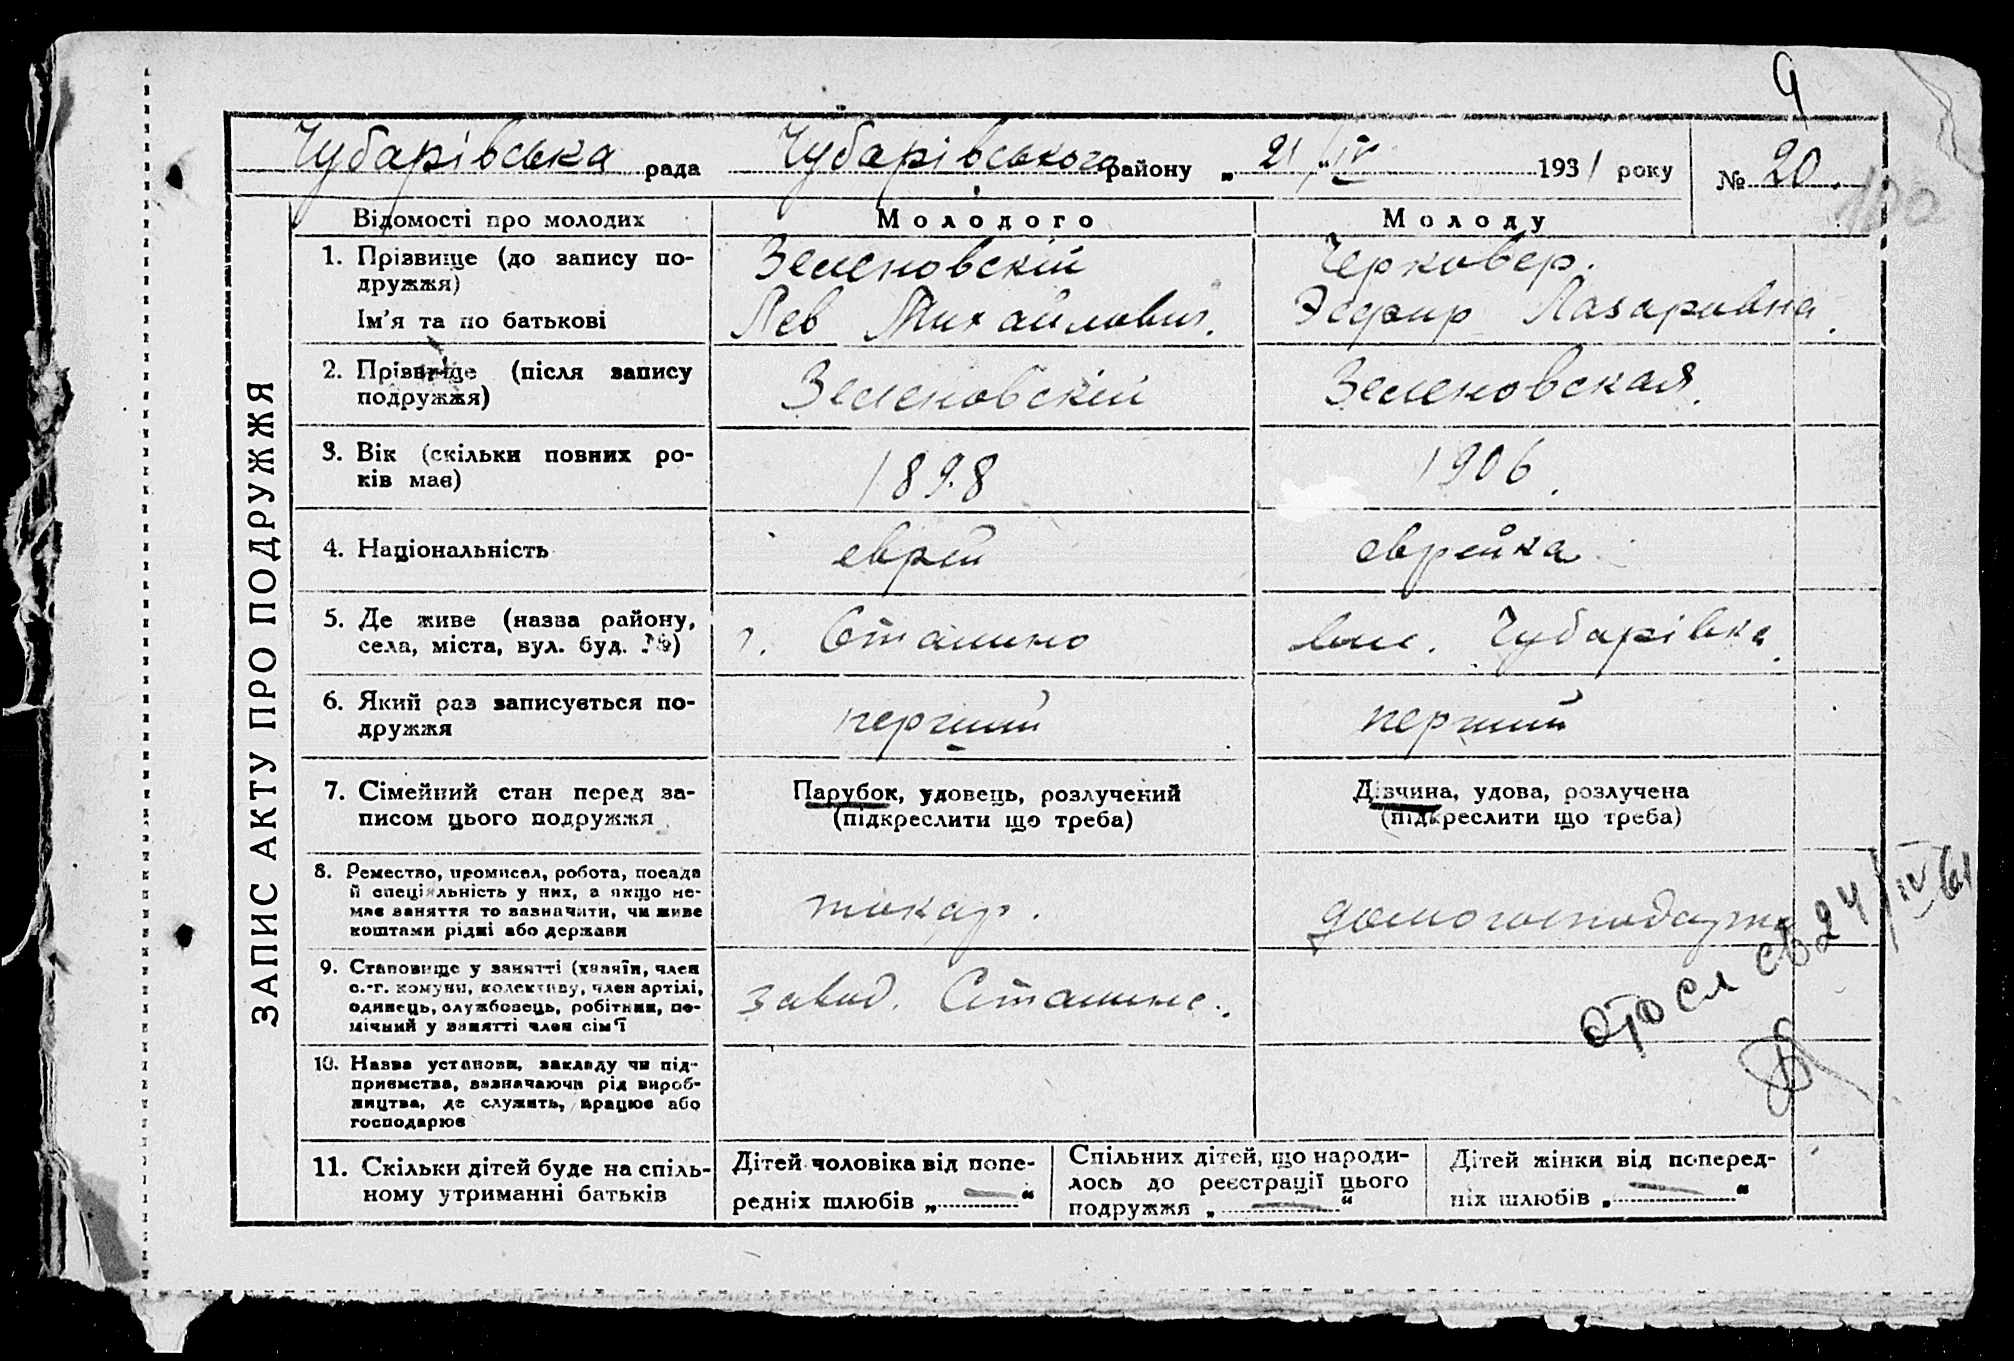 9
Чубарівська рада Чубарівського району „ 21 / „ IV 1931 року № 20.
100
ЗАПИС АКТУ ПРО ПОДРУЖЖЯ
Відомості про молодих
Молодого
Молоду
1. Прізвище (до запису по-
дружжя)
Ім'я та по батькові
Зеленовскій
Лев Михайлович.
Черковер.
Эсфир Лазаривна.
2. Прізвище (після запису
подружжя)
Зеленовскій
Зеленовская.
3. Вік (скільки повних ро-
ків має)
1898
1906.
4. Національність
еврей
еврейка
5. Де живе (назва району,
села, міста, вул. буд. №)
г. Сталино
Чубарівка.
6. Який раз записується по-
дружжя
перший
перший
7. Сімейний стан перед за-
писом цього подружжя
Парубок, удовець, розлучений
(підкреслити що треба)
Дівчина, удова, розлучена
(підкреслити що треба)
8. Ремество, промисел, робота, посада
й спеціяльність у них, а якщо не-
має заняття то зазначити, чи живе
коштами рідні або держави
токар.
домогосподарка
9. Становище у занятті (хазяїн, член
с.-г. комуни, колективу, член артілі,
одинець, службовець, робітник, по-
мічний у занятті член сім'ї
завод. Сталине.
24/IV 61
10. Назва установи, закладу чи під-
приємства, зазначаючи рід вироб-
ництва, де служить, працює або
господарює
11. Скільки дітей буде на спіль-
ному утриманні батьків
Дітей чоловіка від попе-
редніх шлюбів „ — “
Спільних дітей, що народи-
лось до реєстрації цього
подружжя „ — “
Дітей жінки від поперед-
ніх шлюбів „ — “